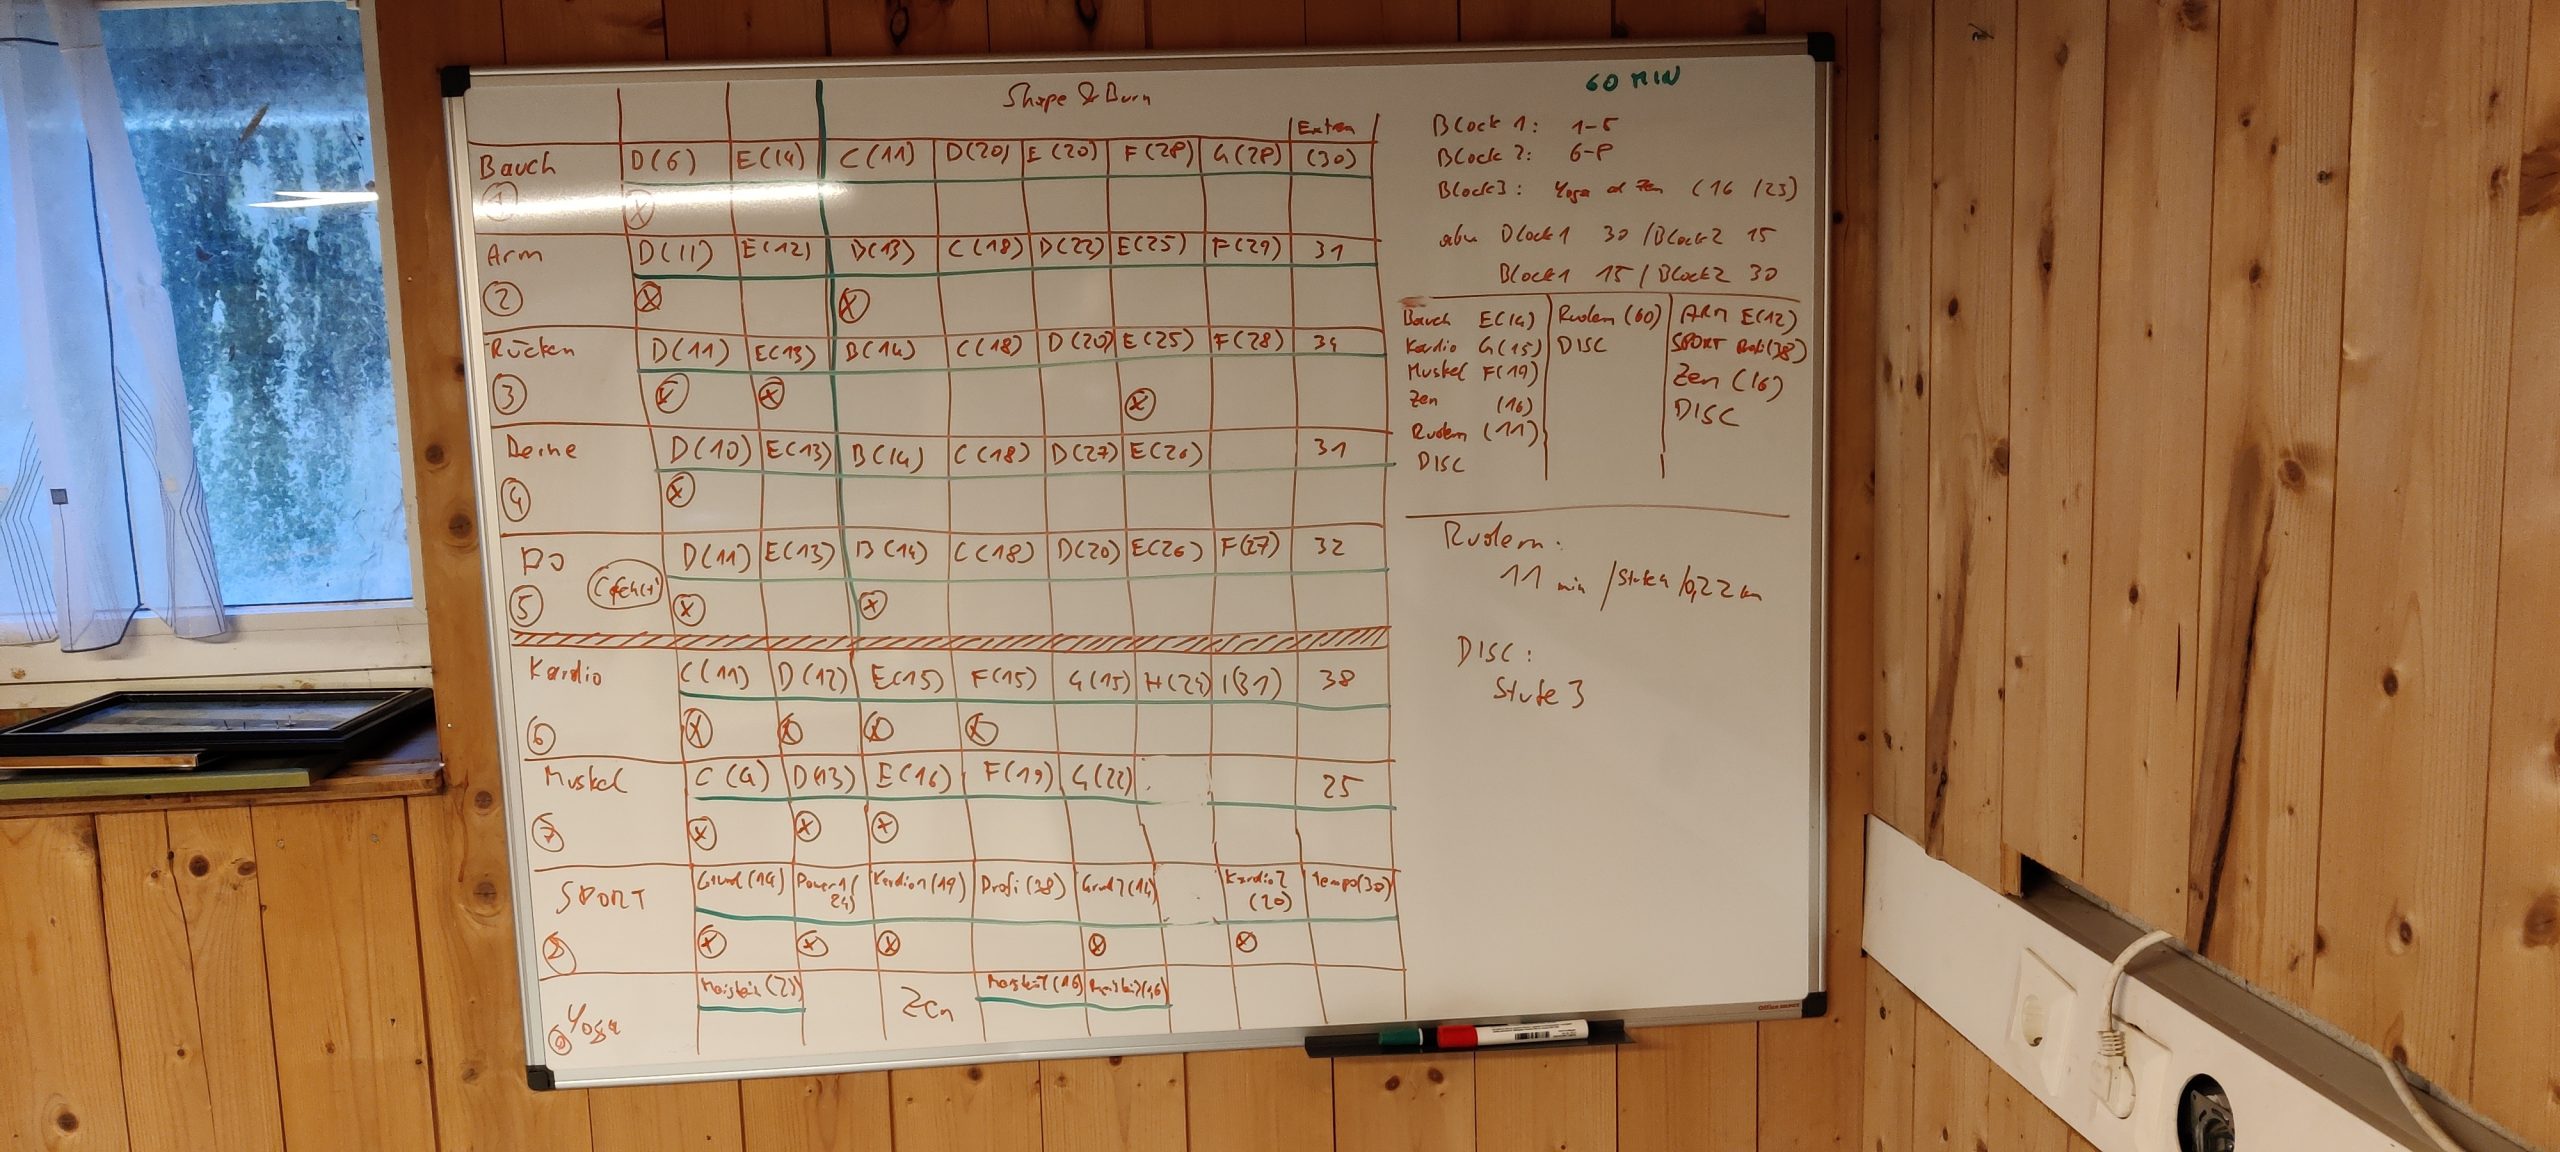 Shape & Burn
60 MIN
Extra
Bauch D(6) E(14) C(11) D(20) E(20) F(28) G(28) (30)
1 X
Arm D(11) E(12) B(13) C(18) D(22) E(25) F(29) 31
2 X X
Rücken D(11) E(13) B(14) C(18) D(20) E(25) F(28)
3 X X X
Beine D(10) E(13) B(14) C(18) D(27) E(26) 31
4 X
PO D(11) E(13) B(14) C(18) D(20) E(26) F(27) 32
(C fehlt)
5 X X
Kardio C(11) D(12) E(15) F(15) G(15) I(31) 38
6 X X X X
Muskel D(13) E(16) F(19) G(22) 25
7 X X X
SPORT Grund(14) Power1(24) Kardio1(19) Profi(38) Kardio2(20) Tempo(30)
8 X X X X X
9 Yoga Zen
Block 1: 1-5
Block 2: 6-8
Block 3: Yoga od Zen (16 /23)
Block 1 30 / Block 2 15
Block 1 15 / Block 2 30
Bauch E(14) Rudern (60) ARM E(12)
Kardio G(15) DISC SPORT Profi(38)
Muskel F(19) Zen (16)
Zen (16) DISC
Rudern (11)
DISC
Rudern:
11 min / Stufe 4 / 0,22 km
DISC:
Stufe 3